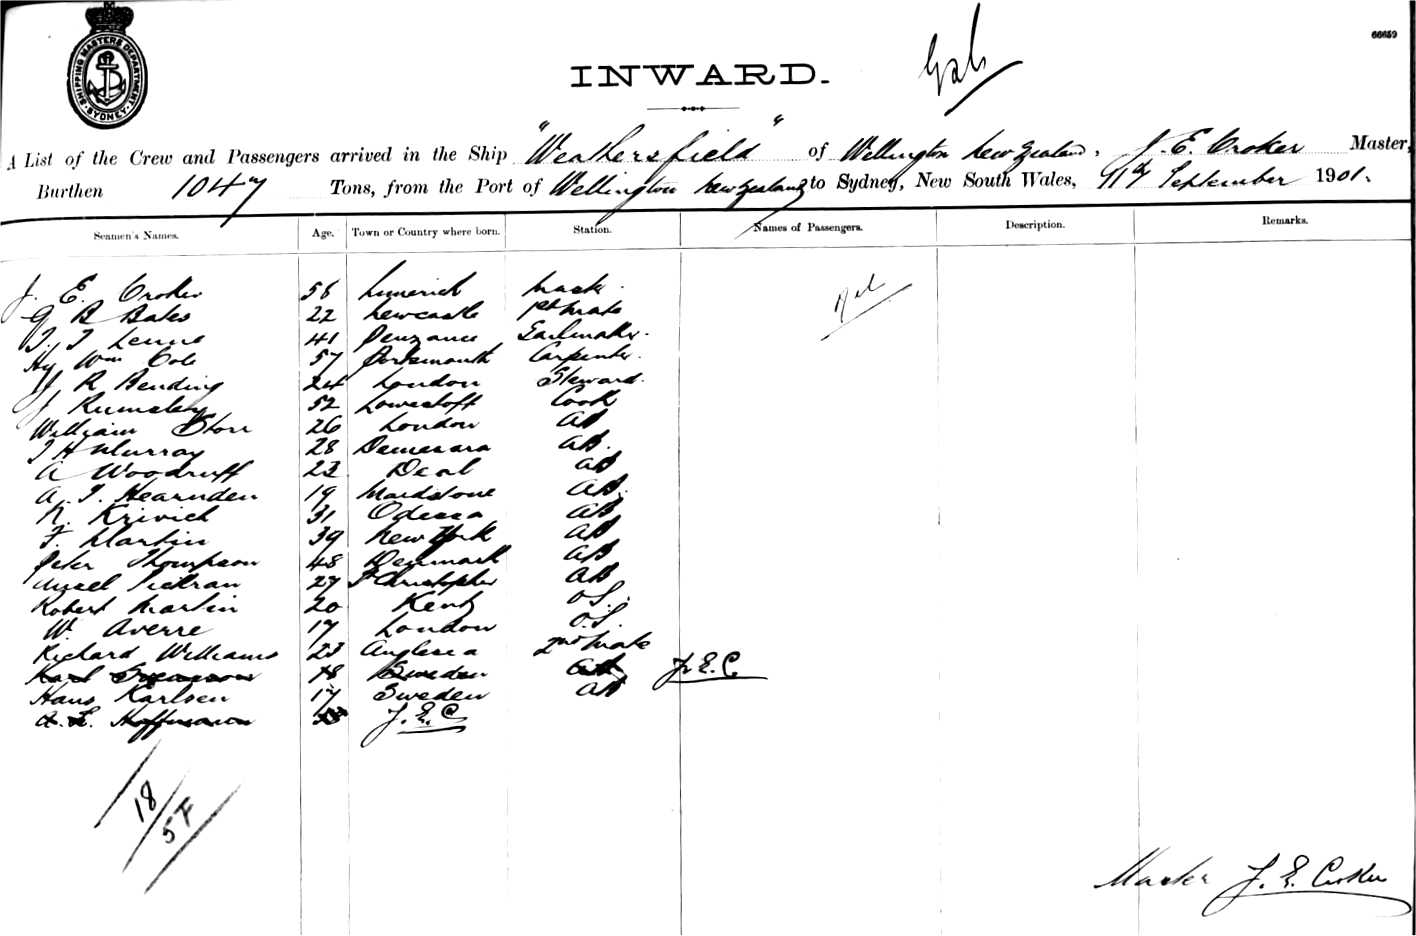 66659
SHIPPING MASTERS DEPARTMENT SYDNEY
INWARD.
A List of the Crew and Passengers arrived in the Ship "Weathersfield" of Wellington New Zealand, J. E. Croker Master,
Burthen 1047 Tons, from the Port of Wellington New Zealand to Sydney, New South Wales, 11th September 1901.
Seamen's Names. Age. Town or Country where born. Station. Names of Passengers. Description. Remarks.
J. E. Croker 56 Limerick Mast. Nil
G B Bates 22 Newcastle 1st Mate
T. J Lenne 41 Penzance Sailmaker.
Hy Wm Cole 57 Portsmouth Carpenter.
R Bending 24 London Steward.
J Rumsley 52 Lowestoft Cook
William Storr 26 London AB
J H Murray 28 Demerara AB.
A Woodruff 22 Deal AB
A. J. Hearnden 19 Maidstone AB.
N. Krivich 31 Odessa AB
F. Martin 39 New York AB
Peter Thompson 48 Denmark AB
27 St Christopher AB
Robert Martin 20 Kent O.S.
W. Averre 17 London O.S.
Richard Williams 23 Anglesea 2nd Mate
Karl 18 Sweden AB J. E. C.
Hans Karlsen 17 Sweden AB
A. E. Hoffmann J. E. C
18
5F
Master J. E. Croker